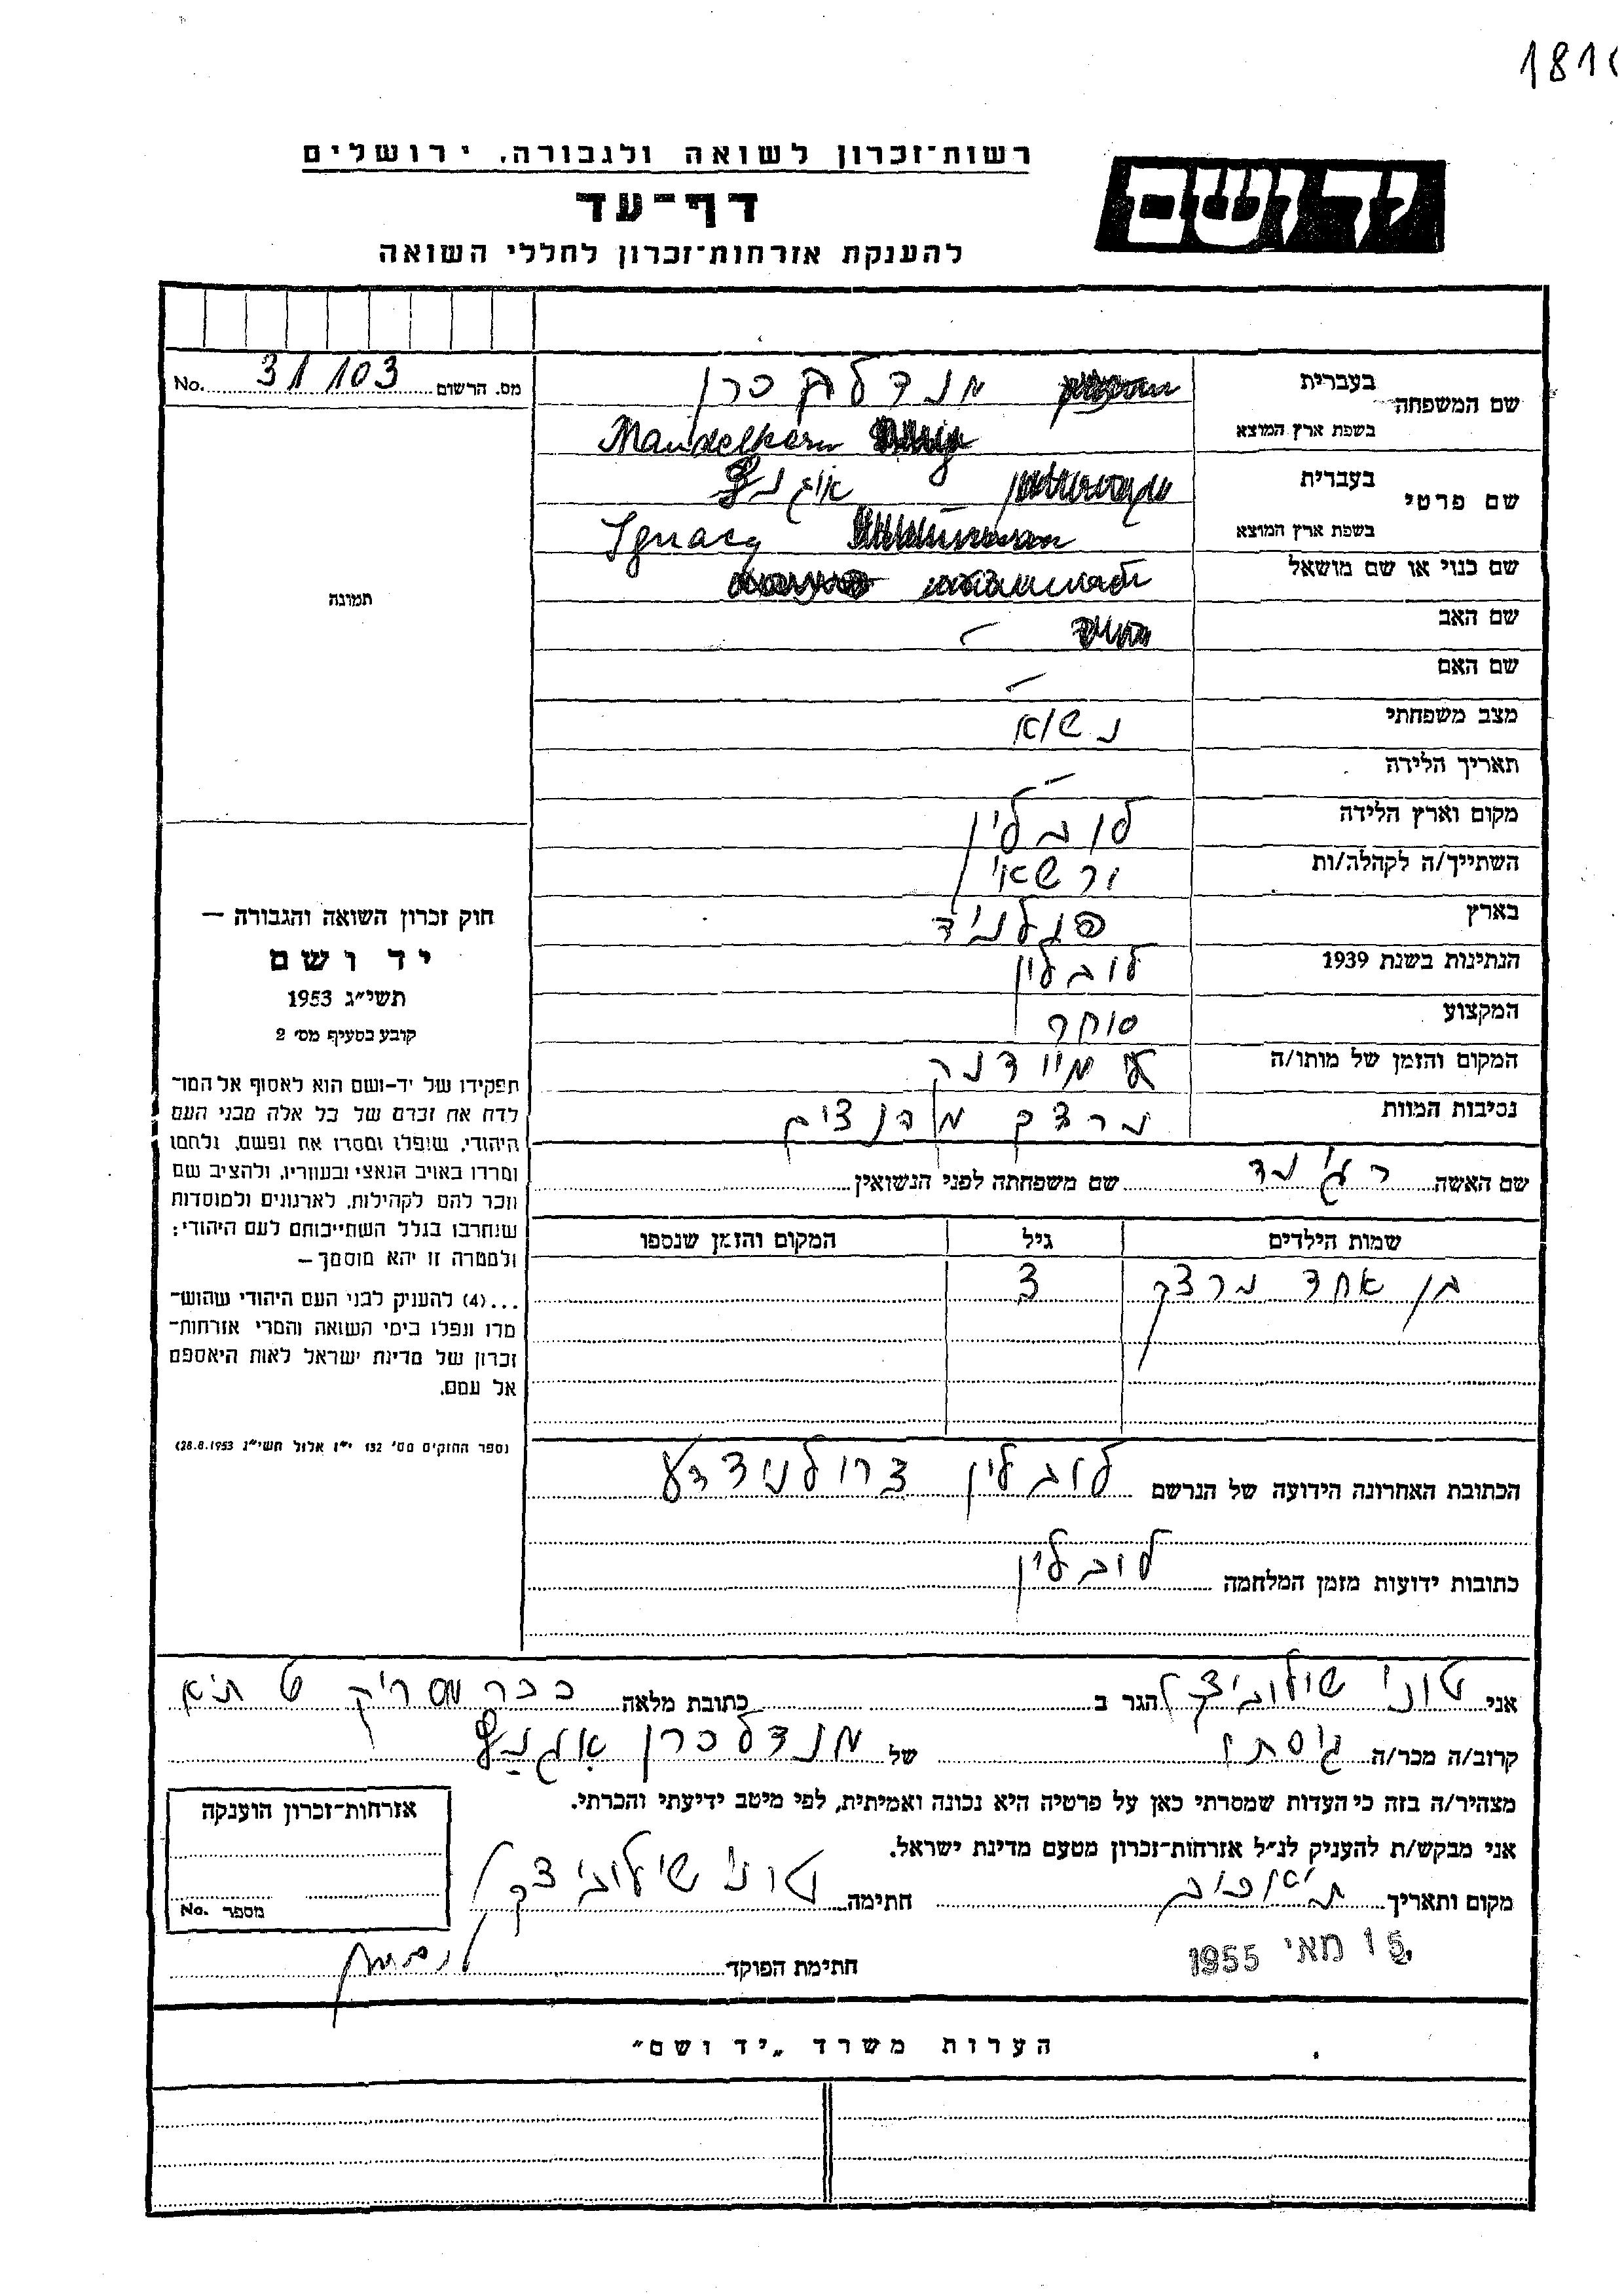 181
רשות־זכרון לשואה ולגבורה, ירושלים
יד ושם
דף־עד
להענקת אזרחות־זכרון לחללי השואה
מס. הרשום 31103 No.
שם המשפחה
בעברית מנדלקרן
בשפת ארץ המוצא Mandelkern
שם פרטי
בעברית
בשפת ארץ המוצא Ignacy
שם כנוי או שם מושאל
שם האב –
שם האם –
מצב משפחתי נשוא
תאריך הלידה –
מקום וארץ הלידה לובלין
השתייך/ה לקהלה/ות
בארץ פולניד
הנתינות בשנת 1939 לובלין
המקצוע סוחר
המקום והזמן של מותו/ה מיידנק
נסיבות המוות
תמונה
חוק זכרון השואה והגבורה –
יד ושם
תשי״ג 1953
קובע בסעיף מס׳ 2
תפקידו של יד-ושם הוא לאסוף אל המו־
לדת את זכרם של כל אלה מבני העם
היהודי, שנפלו ומסרו את נפשם, נלחמו
ומרדו באויב הנאצי ובעוזריו, ולהציב שם
וזכר להם לקהילות, לארגונים ולמוסדות
שנחרבו בגלל השתייכותם לעם היהודי;
ולמטרה זו יהא מוסמך –
...(4) להעניק לבני העם היהודי שהוש־
מדו ונפלו בימי השואה והמרי אזרחות־
זכרון של מדינת ישראל לאות היאספם
אל עמם.
(ספר החוקים מס׳ 132 י״ז אלול תשי״ג 28.8.1953)
שם האשה שם משפחתה לפני הנשואין
שמות הילדים גיל המקום והזמן שנספו
בן אחד 3
הכתובת האחרונה הידועה של הנרשם לובלין
כתובות ידועות מזמן המלחמה לובלין
אני טוני הגר ב כתובת מלאה ככר מסריק ת״א
קרוב/ה מכר/ה גיסתו של מנדלכרן
מצהיר/ה בזה כי העדות שמסרתי כאן על פרטיה היא נכונה ואמיתית, לפי מיטב ידיעתי והכרתי.
אני מבקש/ת להעניק לנ״ל אזרחות־זכרון מטעם מדינת ישראל.
מקום ותאריך חתימה טוני
15 מאי 1955
חתימת הפוקד
אזרחות־זכרון הוענקה
מספר No.
הערות משרד „יד ושם״